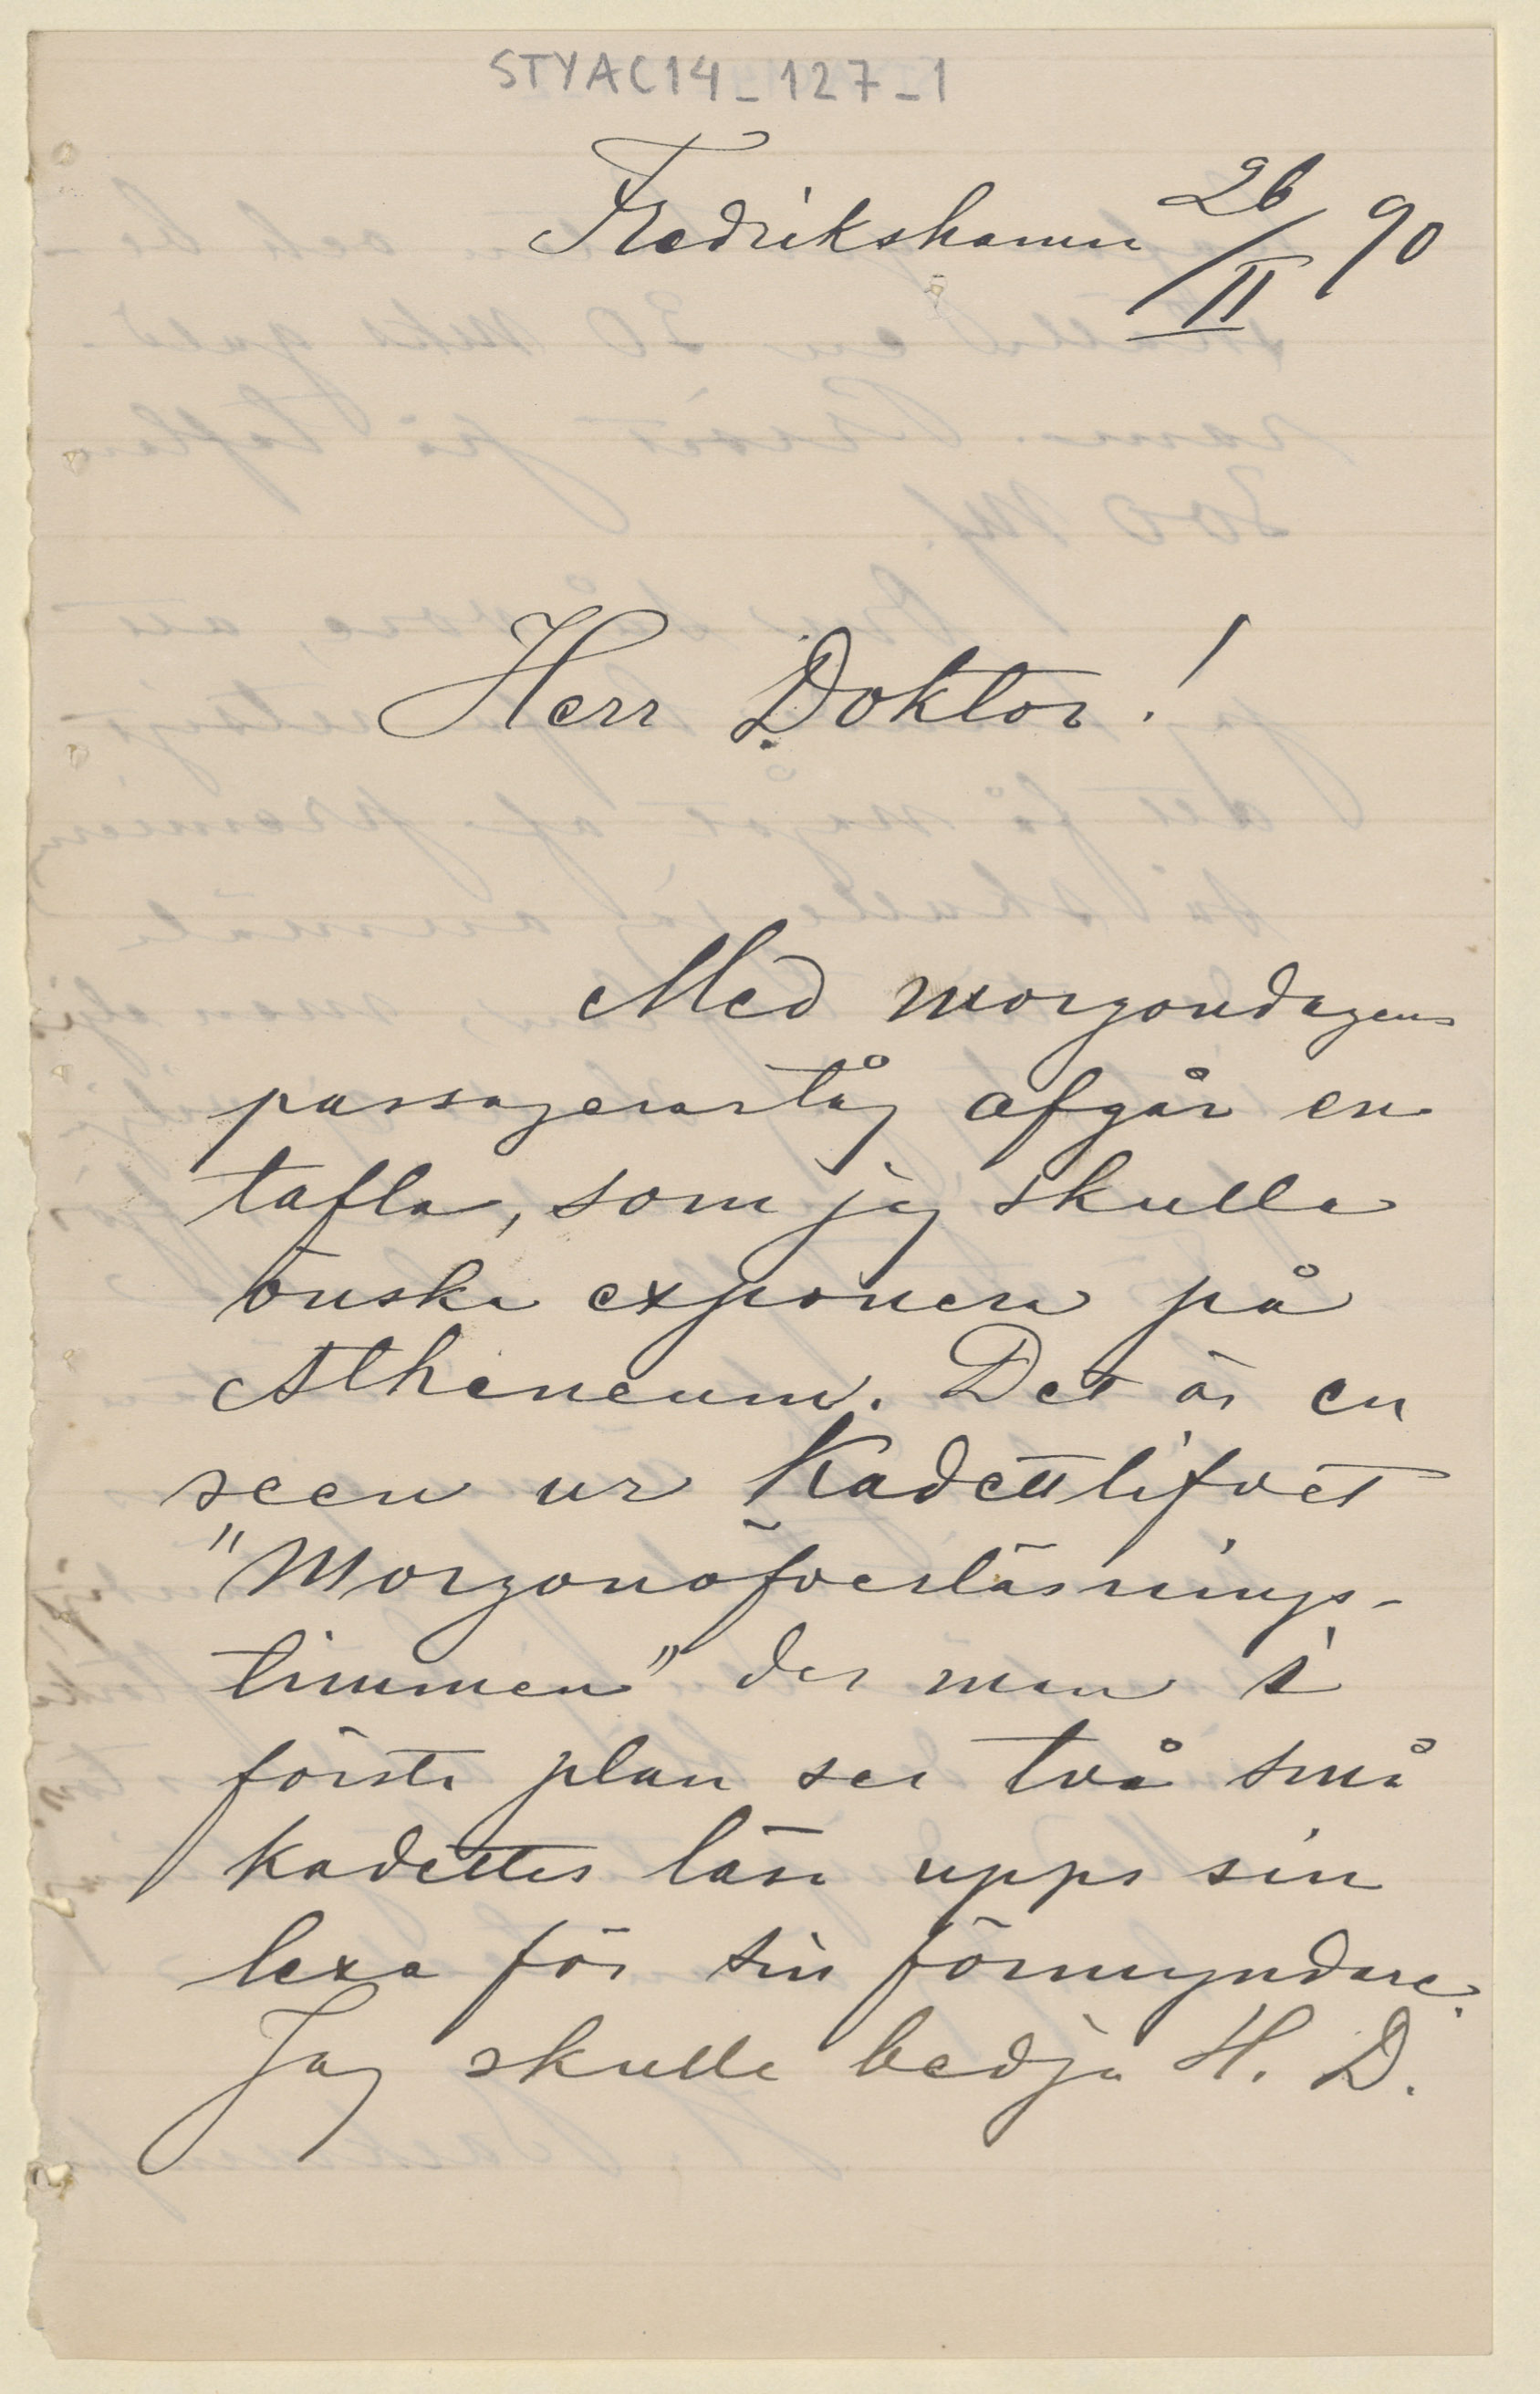 STYAC14_127_1
Fredrikshamn 26/II 90
Herr Doktor!
Med morgondagens
passagerartåg afgår en
tafla, som jag skulle
önska exponera på
Atheneum. Det är en
scen ur Kadettlifvet
"Morgonöfverläsnings-
timmen" der man i
första plan ser två små
kadetter läsa uppa sin
lexa för sin förmyndare.
Jag skulle bedja H. D.